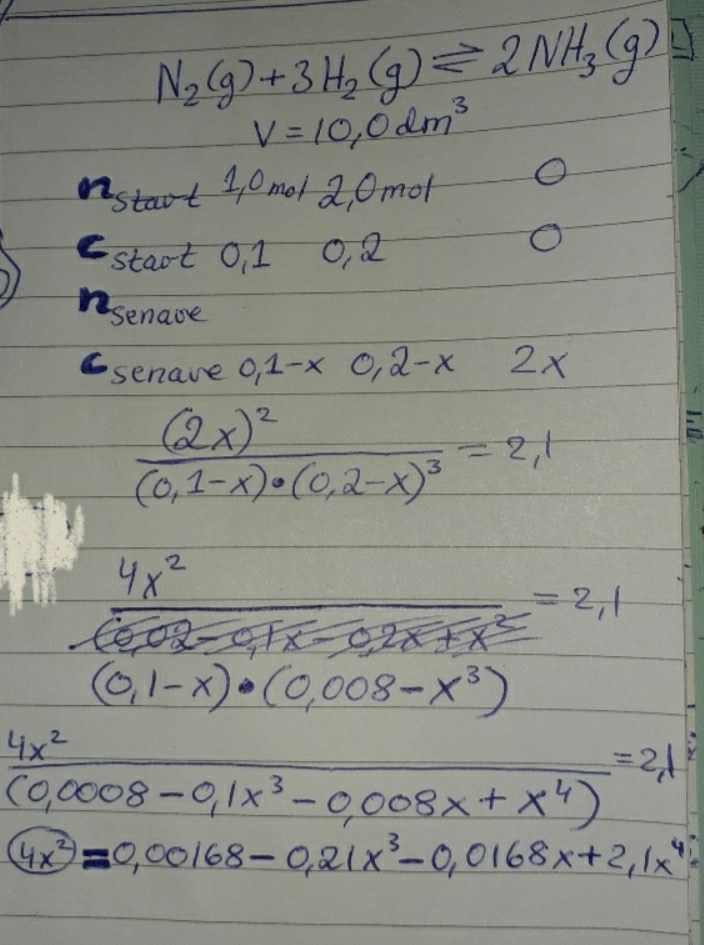 N₂(g)+3H₂(g)⇌2NH₃(g)
V=10,0dm³
n start 1,0mol 2,0mol 0
c start 0,1 0,2 0
n senare
c senare 0,1-x 0,2-x 2x
(2x)²/((0,1-x)•(0,2-x)³) = 2,1
4x² = 2,1
(0,02-0,1x-0,2x+x²
(0,1-x)•(0,008-x³)
4x²/(0,0008-0,1x³-0,008x+x⁴) =2,1
4x²=0,00168-0,21x³-0,0168x+2,1x⁴